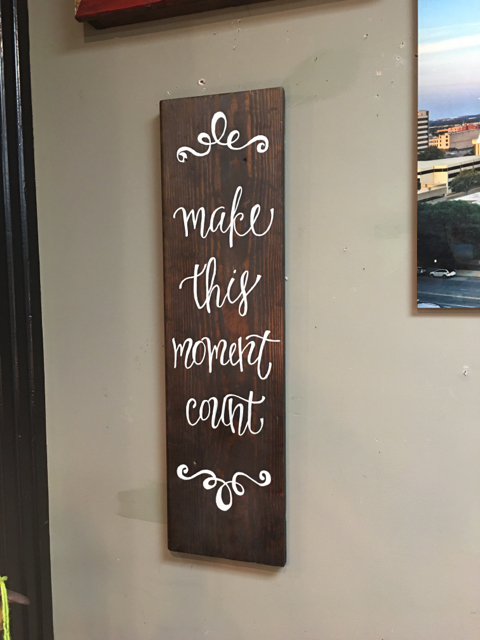 make
this
moment
count